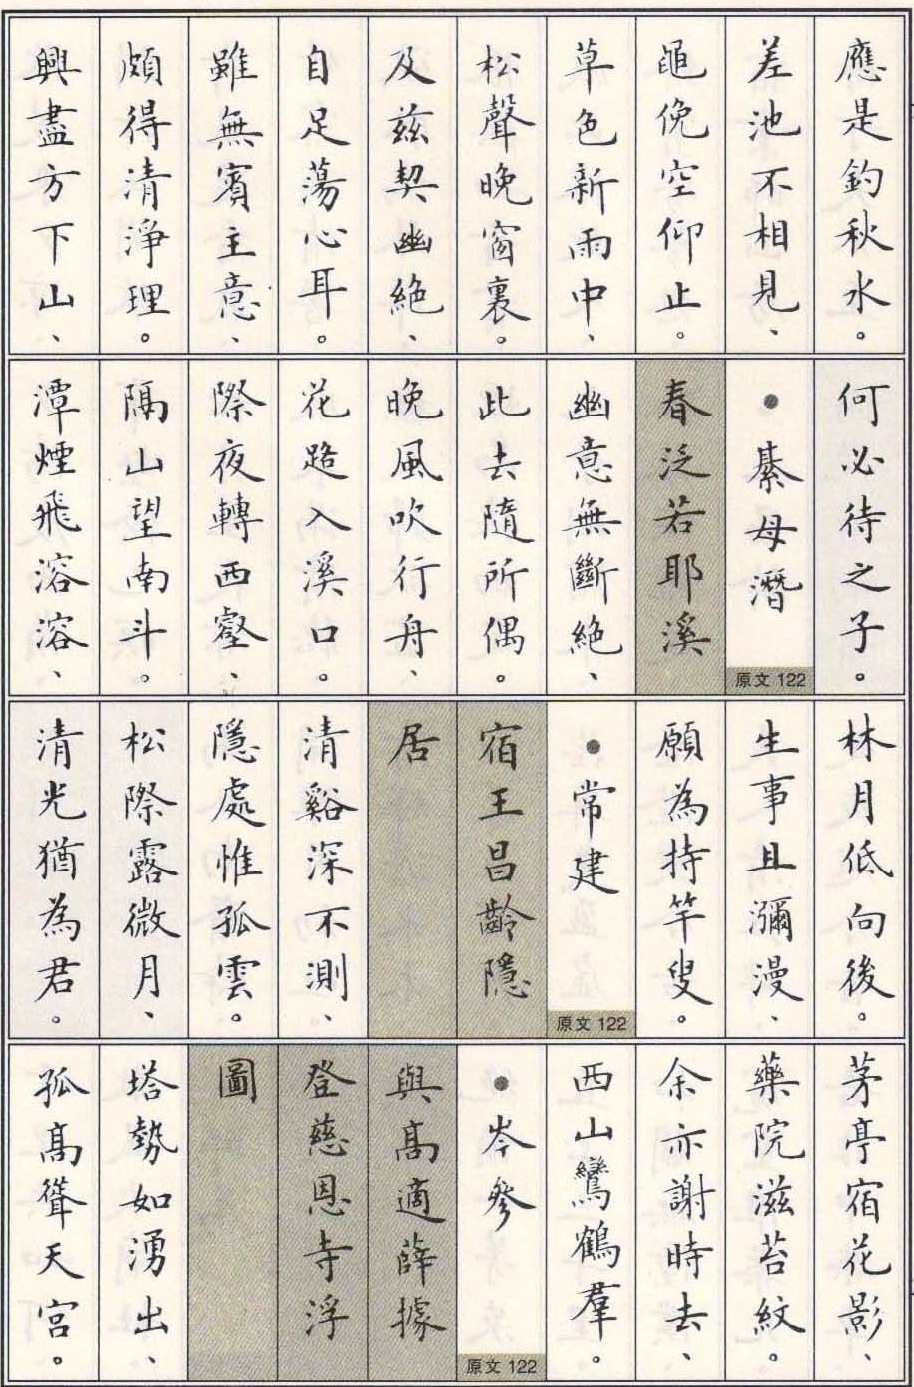 應是釣秋水。
差池不相見、
黽俛空仰止。
草色新雨中、
松聲晚窗裏。
及茲契幽絕、
自足蕩心耳。
雖無賓主意、
頗得清淨理。
興盡方下山、
何必待之子。
●綦母潛
原文122
春泛若耶溪
幽意無斷絕、
此去隨所偶。
晚風吹行舟、
花路入溪口。
際夜轉西壑、
隔山望南斗。
潭煙飛溶溶、
林月低向後。
生事且瀰漫、
願為持竿叟。
●常建
原文122
宿王昌齡隱
居
清谿深不測、
隱處惟孤雲。
松際露微月、
清光猶為君。
茅亭宿花影、
藥院滋苔紋。
余亦謝時去、
西山鸞鶴羣。
●岑參
原文122
與高適薛據
登慈恩寺浮
圖
塔勢如湧出、
孤高聳天宮。